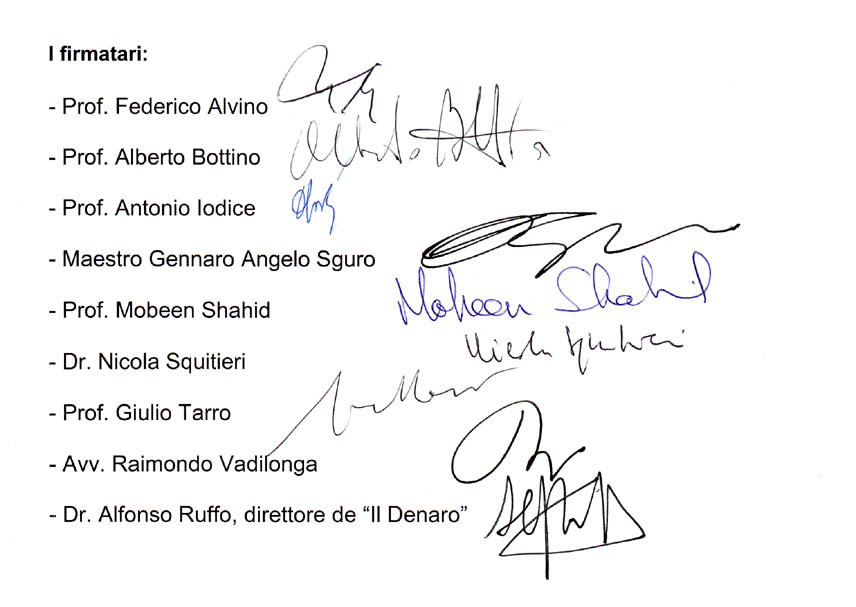 I firmatari:
- Prof. Federico Alvino
- Prof. Alberto Bottino
Alberto
- Prof. Antonio Iodice
- Maestro Gennaro Angelo Sguro
- Prof. Mobeen Shahid
Mobeen Shahid
- Dr. Nicola Squitieri
Nicola Squitieri
- Prof. Giulio Tarro
- Avv. Raimondo Vadilonga
- Dr. Alfonso Ruffo, direttore de “Il Denaro”